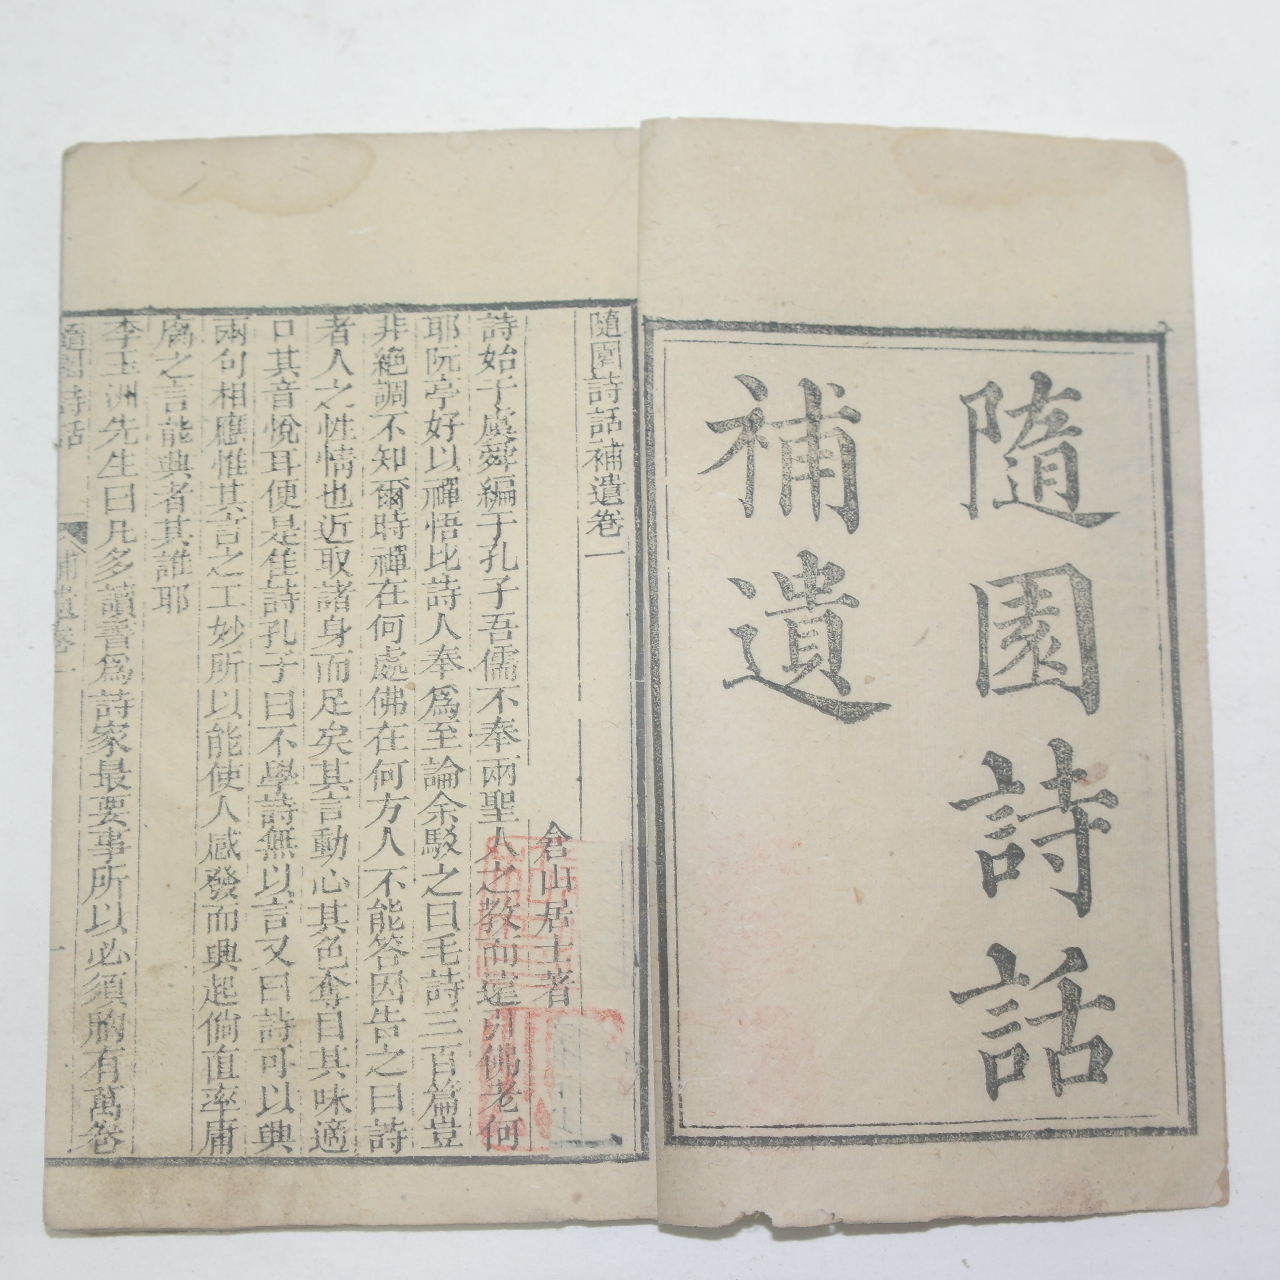 隨園詩話
補遺
隨園詩話補遺卷一
倉山居士著
詩始于虞舜編于孔子吾儒不奉兩聖人之教而遠引佛老何
耶阮亭好以禪悟比詩人奉爲至論余駁之曰毛詩三百篇豈
非絕調不知爾時禪在何處佛在何方人不能答因告之曰詩
者人之性情也近取諸身而足矣其言動心其色奪目其味適
口其音悅耳便是佳詩孔子曰不學詩無以言又曰詩可以興
兩句相應惟其言之工妙所以能使人感發而興起倘直率庸
腐之言能興者其誰耶
李玉洲先生曰凡多讀書爲詩家最要事所以必須胸有萬卷
隨園詩話
補遺卷一
一